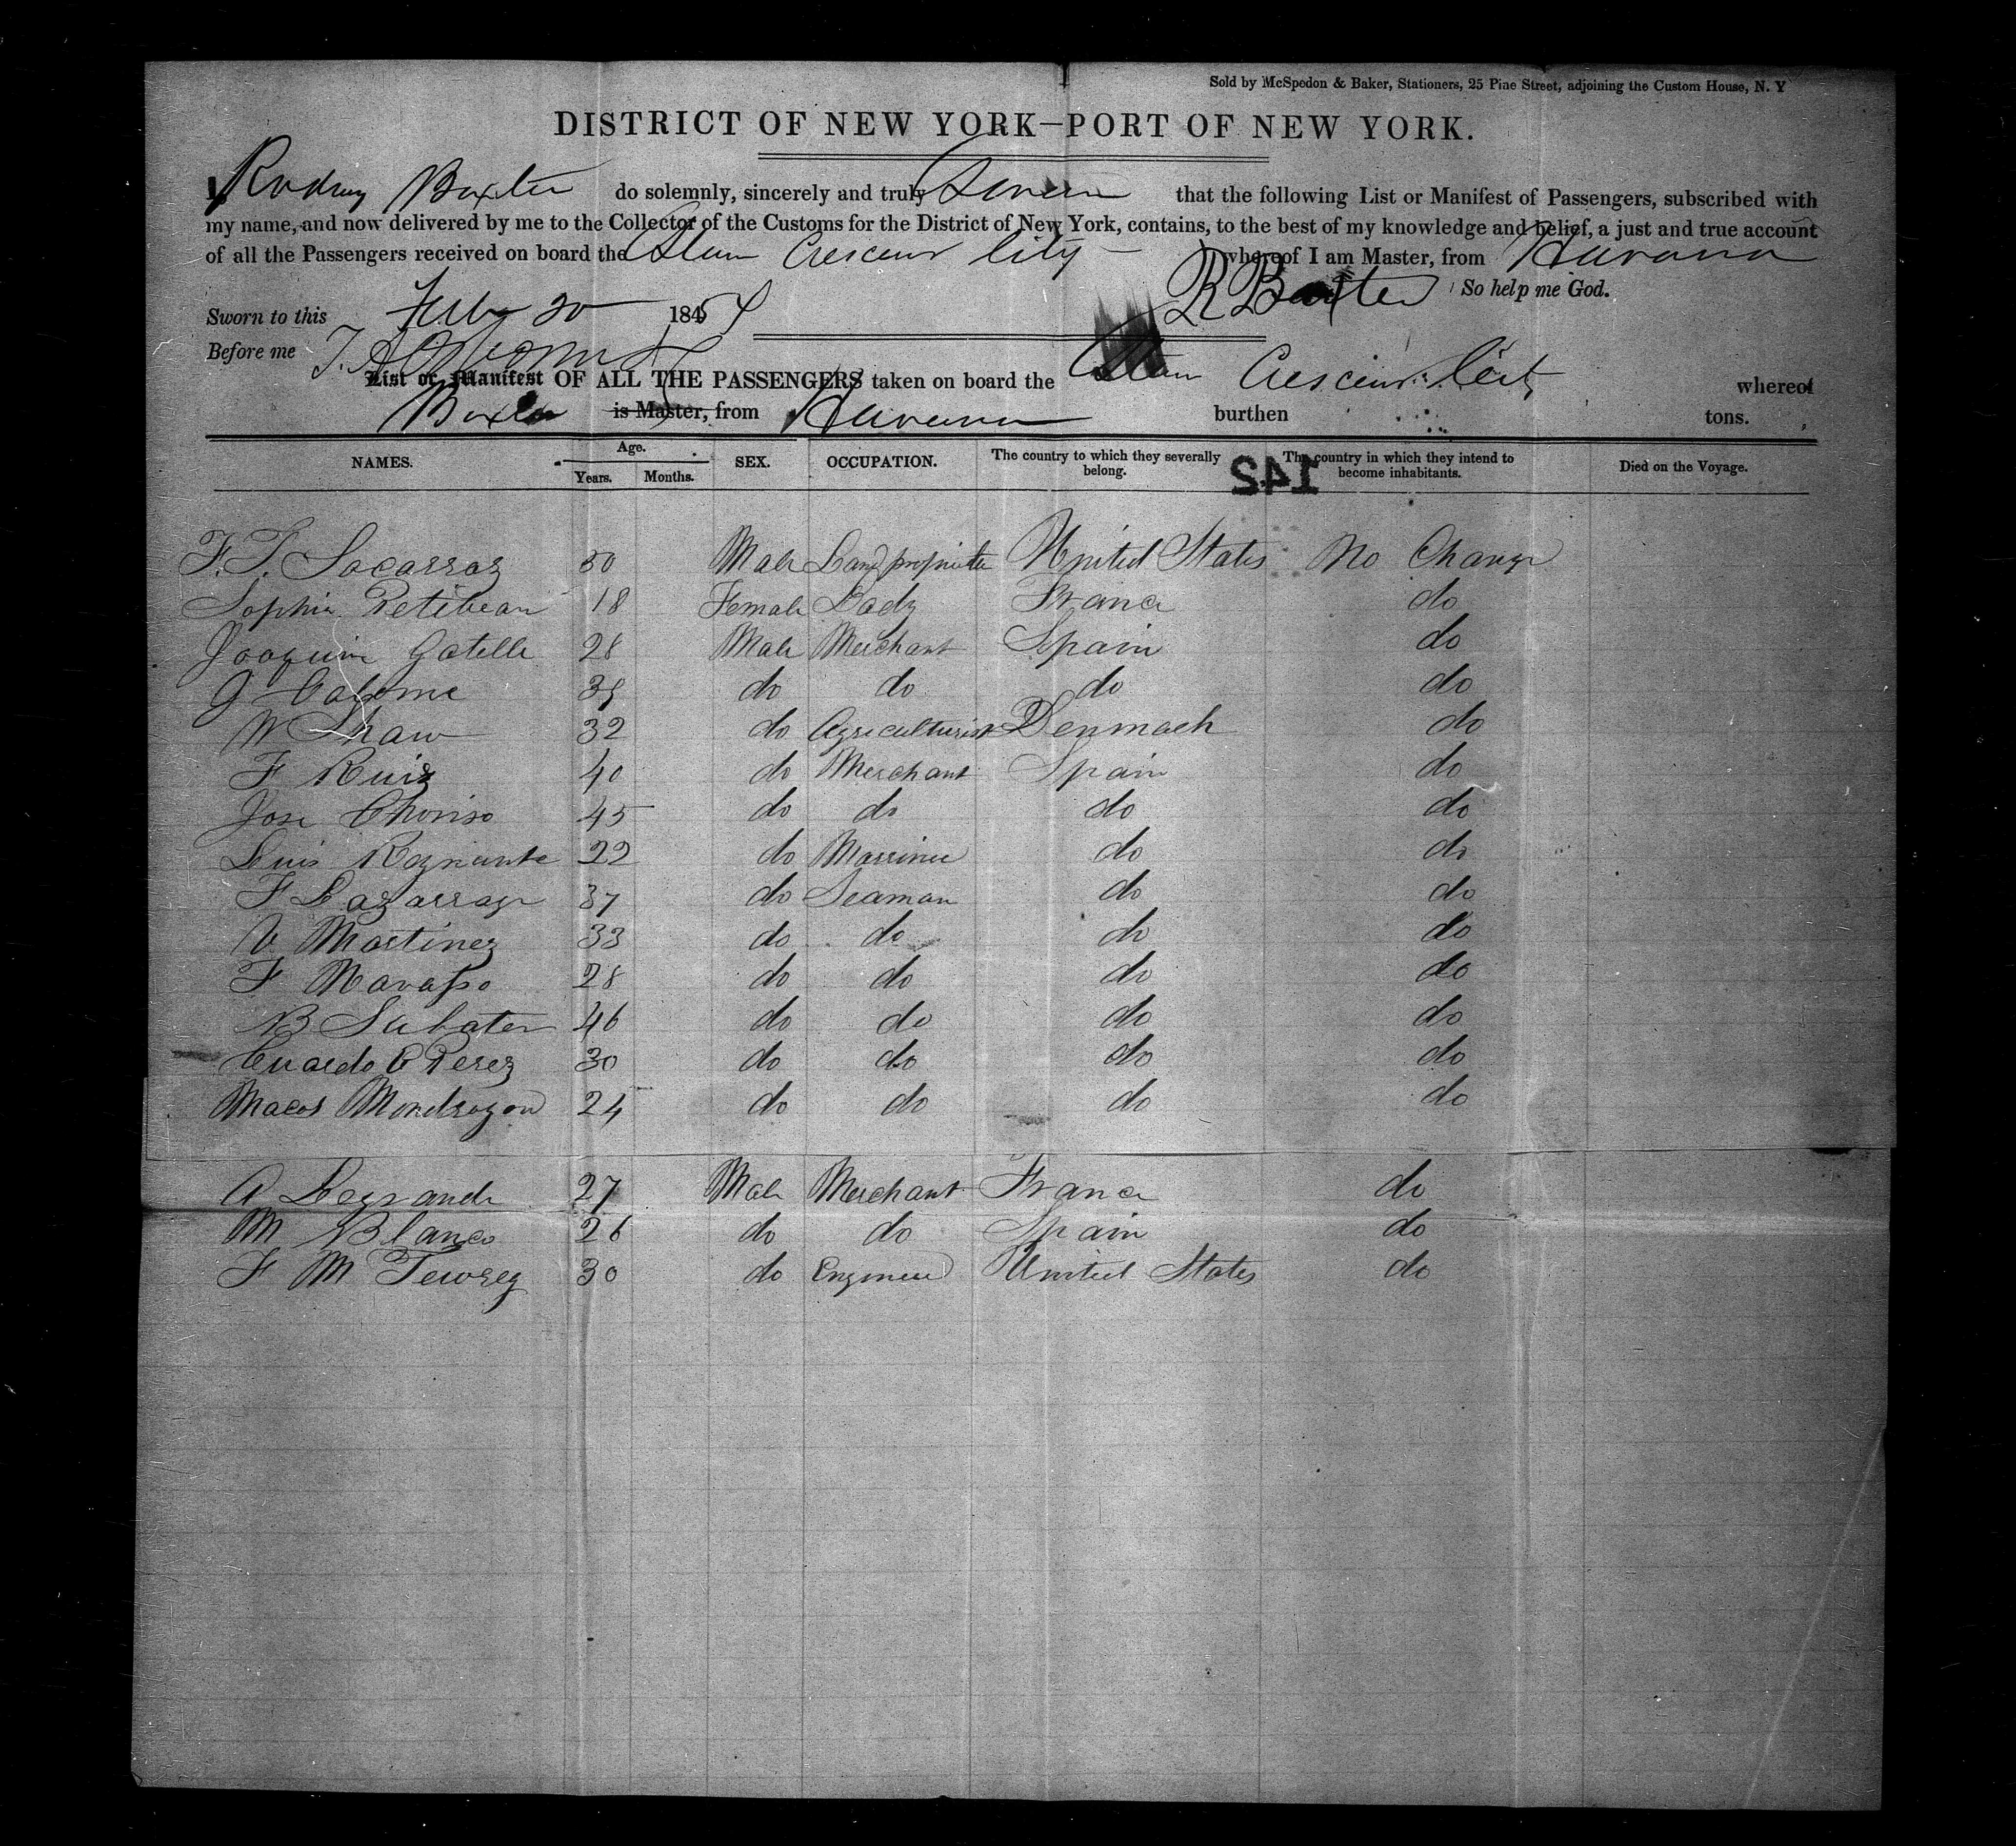 Sold by McSpedon & Baker, Stationers, 25 Pine Street, adjoining the Custom House, N. Y
DISTRICT OF NEW YORK—PORT OF NEW YORK.
I, Rodney Baxter do solemnly, sincerely and truly Swear that the following List or Manifest of Passengers, subscribed with
my name, and now delivered by me to the Collector of the Customs for the District of New York, contains, to the best of my knowledge and belief, a just and true account
of all the Passengers received on board the Steam Crescent City whereof I am Master, from Havana
R Baxter So help me God.
Sworn to this Feby 20 1854
Before me
List or Manifest OF ALL THE PASSENGERS taken on board the Steam Crescent City whereof
Baxter is Master, from Havana burthen tons.
NAMES. Age. Years. Months. SEX. OCCUPATION. The country to which they severally belong. The country in which they intend to become inhabitants. Died on the Voyage.
142
F. T. Socarraz 30 Male Land proprieter United States No Change
Sophia Petitbean 18 Female Lady France do
Joaquim Gatelle 28 Male Merchant Spain do
J Calome 38 do do do do
W Shaw 32 do Agriculturist Denmark do
F Ruiz 40 do Merchant Spain do
Jose Choriso 45 do do do do
Luis Regnante 22 do Marriner do do
F Lazarraga 37 do Seaman do do
V. Martinez 33 do do do do
F Navasso 28 do do do do
B Sabater 46 do do do do
Euardo C Perez 30 do do do do
Macos Mondragon 24 do do do do
A Legrande 27 Male Merchant France do
M Blanco 26 do do Spain do
F M 30 do Engineer United States do